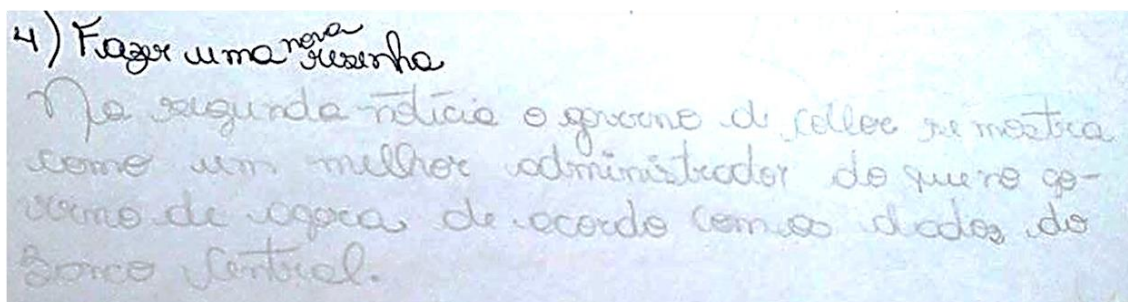 4) Fazer uma nova resenha
Na segunda notícia o governo d collor se mostra
como um melhor administrador do que no go-
verno de agora de acordo com os dados do
Banco Central.